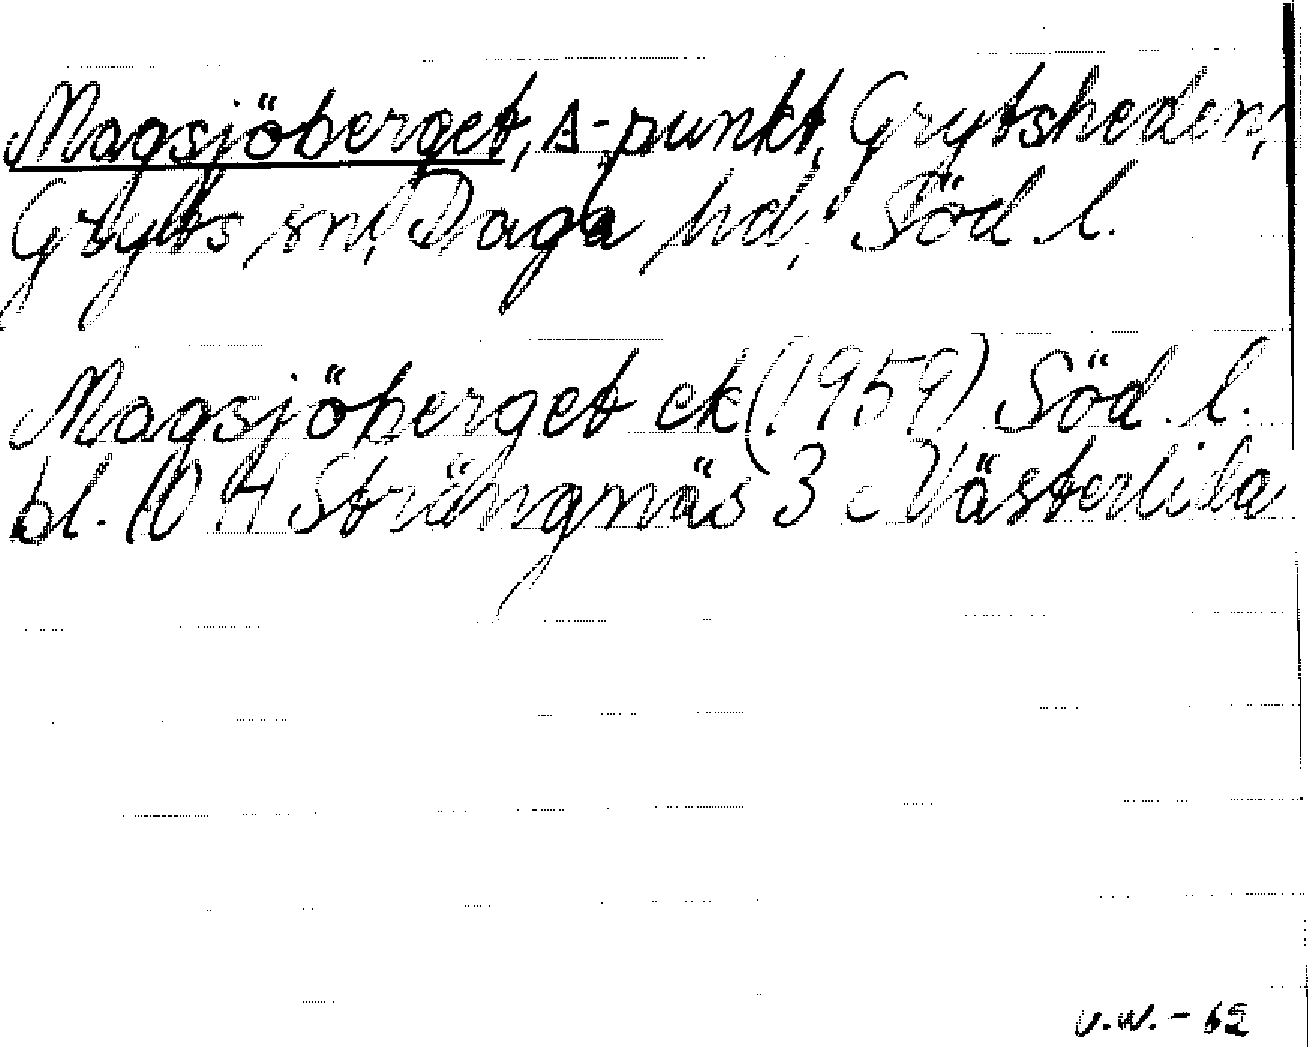 Magsjöberget, Δ-punkt, Grytsheden,
Gryts sn, Daga hd, Söd. l.
Magsjöberget ek (1959) Söd. l.
bl. 10 H Strängnäs 3 c Västerlida
V.W. - 62